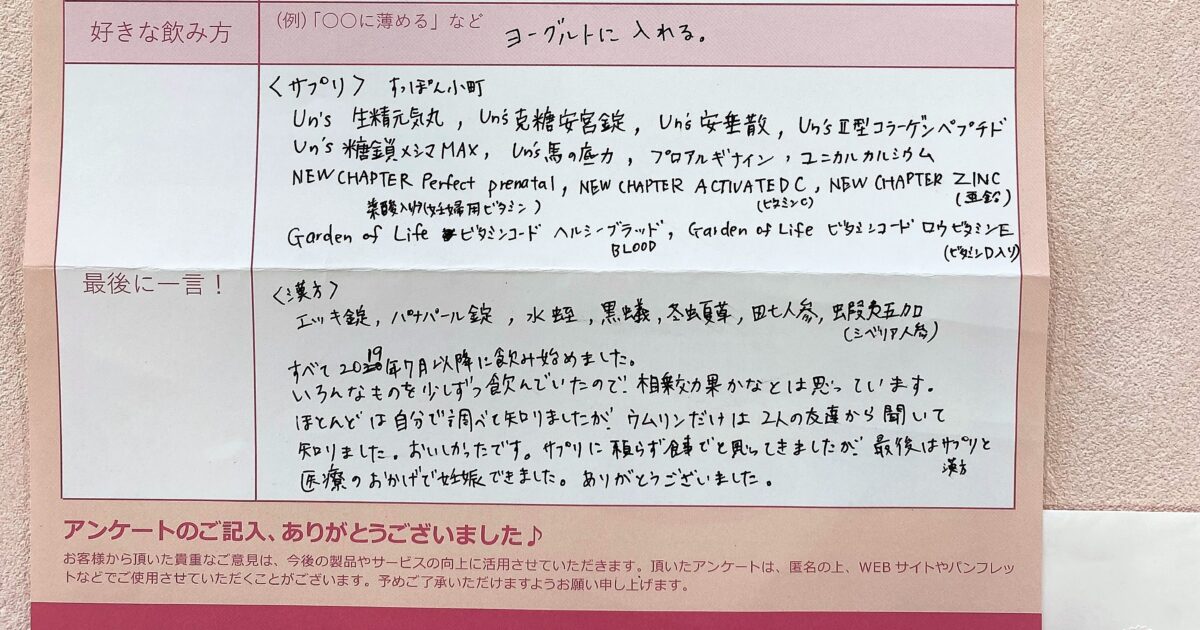 好きな飲み方
(例)「〇〇に薄める」など
ヨーグルトに 入れる。
〈サプリ〉 すっぽん小町
Un's 生精元気丸 , Un's克糖安宮錠 , Un's安垂散 , Un'sⅡ型コラーゲンペプチド
Un's 糖鎖メシマMAX, Un's馬の底力 , プロアルギナイン , ユニカルカルシウム
NEW CHAPTER Perfect prenatal , NEW CHAPTER ACTIVATED C , NEW CHAPTER ZINC
葉酸入り(妊婦用ビタミン) (ビタミンC) (亜鉛)
Garden of Life ビタミンコード ヘルシーブラッド , Garden of Life ビタミンコード ロウビタミンE
BLOOD (ビタミンD入り)
最後に一言!
〈漢方〉
エッキ錠 , パナパール錠 , 水蛭 , 黒蟻 , 冬虫夏草 , 田七人参 , 蝦夷五加
(シベリア人参)
すべて 2019年7月以降に飲み始めました。
いろんなものを少しずつ飲んでいたので、相乗効果かなとは思っています。
ほとんどは自分で調べて知りましたが、ウムリンだけは 2人の友達から聞いて
知りました。おいしかったです。サプリに頼らず食事でと思ってきましたが、最後はサプリと
漢方
医療のおかげで妊娠できました。ありがとうございました。
アンケートのご記入、ありがとうございました♪
お客様から頂いた貴重なご意見は、今後の製品やサービスの向上に活用させていただきます。頂いたアンケートは、匿名の上、WEBサイトやパンフレッ
トなどでご使用させていただくことがございます。予めご了承いただけますようお願い申し上げます。